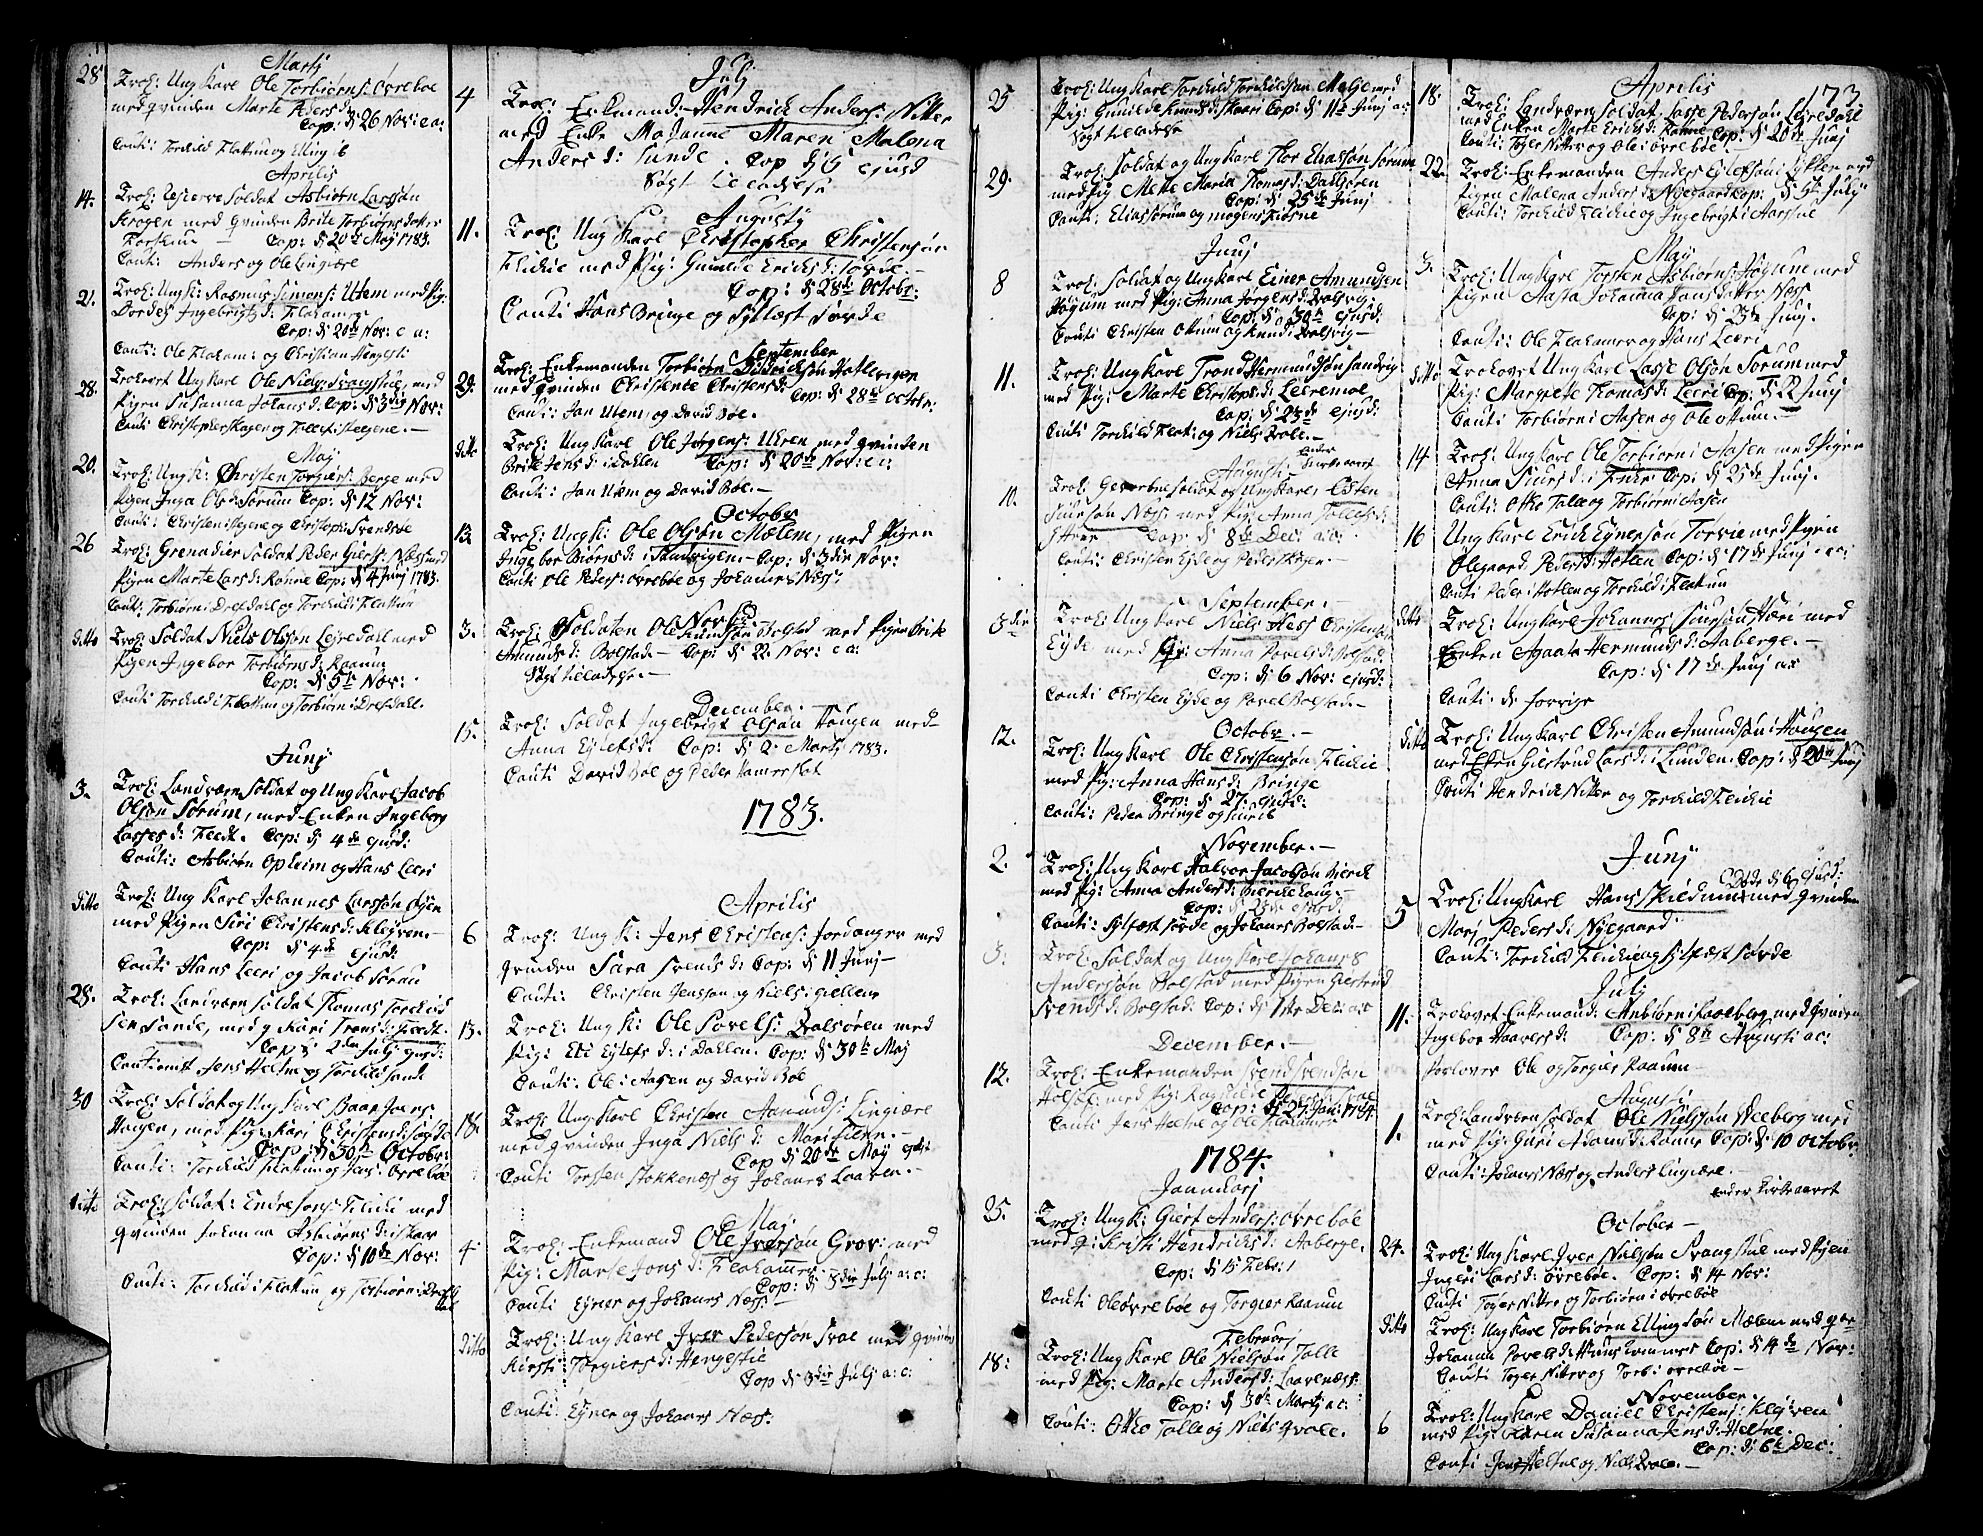 Martj
28 Trol: Ung Karl Ole Torbiørns: Øvreboe
med qvinden Marte Peders d:
Cop: d: 26 Nov: e a:
Cauti: Torchild Flattum og Elling ib
Aprilis
14. Trol: Reserve Soldat Asbiørn Larssøn
Krogen med qvinden Brite Torbiørns datter
Cop: d: 20de Maj 1783.
Cauti Anders og Ole Lingiære
21. Trol: Ung K: Rasmus Simons: Utem med Pig:
Dordej Ingebrigtz d: Flahamer
Cop: d: 20de Nov: e a:
Cauti: Ole Flaham: og Christian Hengesti
28. Trolovet Ung Karl Ole Niels: Svangstue, med
Pigen Susanna Johans d: Cop: d: 3die Nov:
Cauti: Christopher Skagen og
Maj
20. Trol: Ung K: Christen Torgiers: Berge med
Pigen Inga Ols d: Sørum Cop: d: 12 Nov:
Cauti: Christen
26 Trol: Grenadier Soldat Peder Giers: Næss med
Pigen Marte Lars d: Ronne Cop: d: 4 Junj 1783.
Cauti: Torbiørn i Drefdahl og Torchild i Flattum
ditto Trol: Soldat Niels Olssøn Leiredahl med
Pigen Ingebor Torbiørns d: Raaum
Cop: d: 5te Nov:
Cauti Torchild i Flattum og Torbiørn i Drefdahl.
Junj
3. Trol: Landværn Soldat og Ung Karl Jacob
Olsøn Sørum, med Enken Ingeborg
Lasses d: Cop: d: 4de ejusd:
Cauti: Asbiørn Opheim og Hans Leeri
ditto Trol: Ung Karl Johannes Larssøn
med Pigen Siri Christens d: Kleiven
Cop: d: 4de ejusd:
Cauti Hans Leeri og Jacob Sørum
28. Trol: Landværn Soldat Thomas Torchild
sen Sande, med q Kari
Cop: d: 2den Julj ejusd:
Jens Heltne og Torchild Sande
30 Trol: Soldat og Ung Karl Baar Joens:
Haugen, med Pig: Kari Christens d: Sogde
Cop: d: 30te Octobr:
Cauti: Torchild Flattum og Jens Øvreboe
ditto Trol: Soldat: Endre Joens: med
qvinden Johanna Asbiørns d: i Skaar
Cop: d: 10de Nov:
Cauti: Torchild i Flattum og Torbiørn i
Julj
4 Trol: Enkemand: Hendrick Anders: Nitter
med Enke Madame Maren Malena
Anders d: Sunde. Cop d: 6 ejusd
Søgt
Augustj
11. Trol: Ung Karl Christopher Christensøn
med Pig: Gunilde Erichs d: Sørde.
Cop: d: 28de Octobr:
Cauti Hans Bringe og Sylfæst Sørde
September
29. Trol: Enkemanden Torbiørn
med qvinden Christence Christens d: Cop: d: 28de Octobr:
Cauti: Jan Utem og David Boe.
ditto Trol: Ung Karl Ole Jørgens: Uhren med qvinden
Brite Jens d: i Dahlen Cop: d: 20de Nov: e a:
Cauti: Jan Utem og David Boe.
Octobr
13. Trol: Ung K: Ole Olsøn Mælem, med Pigen
Ingebor Biørns d: i Skadvigen. Cop: d: 3die Nov:
Cauti Ole Peders: Øvreboe og Johannes Næss:
Novbr
3. Trol: Soldaten Ole Bolstad med Pigen Brite
Amunds d: Bolstad. Cop: d: 22 Nov: e a:
Søgt
December.
15. Trol: Soldat Ingebrigt Olsøn Haugen med
Anna Eylefs d: Cop: d: 2 Martj 1783.
Cauti David Boe og Peder
1783.
Aprilis
6 Trol: Ung K: Jens Christens: Jordanger med
qvinden Sara Svends d: Cop: d: 11 Junj
Cauti: Christen Jenssøn og Niels
13. Trol: Ung K: Ole Povels: Qvalsøren med
Pig: Eli Eylefs d: i Dahlen. Cop: d: 30te Maj
Cauti: Ole i Aasen og David Boe
18. Trol: Ung Karl Christen Aamunds: Lingiære
med qvinden Inga Niels d: Marifierne.
Cop d: 20de Maj
Cauti Torsten Stokkenæss og Johannes Laaven.
Maj:
4 Trol: Enkemand Ole Iversøn Grov: med
Pig: Marte Jons d: Flahamer
Cop: d: 3die Julj a: c:
Cauti Eyner og Johans Næss:
ditto Trol: Ung Karl Iver Pedersøn Svae med qvinden
Kirsti Torgiers d: Hengestie
Cop d: 3die Julj a: c:
Cauti: Eyner og Johans Næss:
25 Trol: Ung Karl Torchild Torchildsøn Molje med
Pig: Gunilde Skaar Cop: d: 11te Junj a: c:
Søgt
29. Trol: Soldat og Ung Karl Thor Eliassøn Sørum
med Pig Mette Maria Thomas d: Dalsøren
Cop: d: 25de Junj
Cauti: Elias Sørum og Mogens
Junj
8 Trol: Soldat og Ung Karl Einer Amundsen
med Pig: Anna Jørgens d: Bolsvig:
Cop: d: 30te ejusd:
Cauti Christen Ottum og Knud i Bolsvig
11. Trol: Ung Karl Trond Hermundssøn Sandvig
med Pig: Marte Christophs d: Leiremoe
Cop: d: 25de ejusd:
Cauti Torchild Flatt: og Niels Qvale.
Augusti
10. Trol: Gevorbne soldat og Ung Karl, Osten
Siursøn Næss med Pig: Anna Tollefs d:
Cop d: 8de Dec: a: c:
Cauti: Christen Eyde og Peder Skagen
September.
8die Trol: Ung Karl Niels Hess Christensøn
Eyde med Anna Povels d: Bolstad
Cop: d: 6 Nov: ejusd:
Cauti Christen Eyde og Povel Bolstad
Octobr.
12. Trol: Ung Karl Ole Christensøn
med Pig: Anna Hans d: Bringe
Cop: d: 27. ejusd:
Cauti: Peder Bringe og
November.
2. Trol: Ung Karl Halvor Jacobsøn
med Pig: Anna Anders d:
Cop: d: 25de ejusd
Cauti: Sylfæst Sørde og Johans Bolstad
3. Trol: Soldat og Ung Karl Johans
Andersøn Bolstad med Pigen Giertrud
Svends d: Bolstad: Cop: d: 1ste Dec: a: c
December.
12. Trol: Enkemanden Svend Svendsøn
med Pig: Ragnilde Svae
Cop: d: 27 Jan: 1784
Cauti Jens Heltne og Ole Flahamer
1784.
Januarj
25. Trol: Ung K: Giert Anders: Øvreboe
med q: Kristi Hendrichs d: Aaberge.
Cop: d: 15 Febr:
Cauti Ole Øvreboe og Torgier Raaum
Februarj
18: Trol: Ung Karl Ole Nielsøn Talle
med Pig: Marte Anders d: Laavenæss:
Cop: d: 30te Martj a: c:
Cauti: Otto Talle og Niels Qvale.
173
Aprilis
18. Trol: Landværn Soldat Lasse Pedersøn Leiredahl
med Enken Marte Erichs d: Ronne Cop: d: 20de Junj
Cauti: Toger Nitter og Ole i Øvreboe
22. Trol: Enkemanden Anders Eylefsøn med
Pigen Malena Anders d: Nyegaard Cop: d: 5te Julij
Cauti: Torchild og Ingebrigt i
May
3. Trol: Ung Karl Torsten Asbiørns: med
Pigen Aasta Johanna Hans datter Næss
Cop: d: 23de Junj.
Cauti: Ole Flahamer og Hans Leeri
ditto Trolovet Ung Karl Lasse Olsøn Sørum med
Pig: Margrete Thomas d: Leeri Cop: d: 22 Junj
Cauti: Torbiørn i Aasen og Ole Ottum.
14 Trol: Ung Karl Ole Torbiørn i Aasen med Pigen
Anna Siurs d: i Cop: d: 25de Junj.
Cauti: Otto Talle og Torbiørn i Aasen
16 Ung Karl Erich Eynersøn Torvie med Pigen
Olegaard Peders d: Hotlen Cop: d: 17de Junj e a:
Cauti Peder i Hotlen og Torchild i Flattum
ditto Trol: Ung Karl Johannes Siursøn med
Enken Agaata Hermunds d: Aaberge.
Cop: d: 17de Junj a: c
Cauti: de forrige
ditto Trol: Ung Karl Christen Amundsøn i Haugen
med Enken Giertrud Lars d: i Lunden. Cop: d: 20de Junj
Cauti Hendrich Nitter og Torchild
Junj
5 Trol: Ung Karl Hans med qvinden
Marj Peders d: Nyegaard
Cauti: Torchild og Silfæst Sørde
Julj
11. Trolovet Enkemand: Asbiørn i med qvinden
Ingebor Haavers d: Cop: d: 8de Augusti a c:
Forlover Ole og Torgier Raaum
Augusti
1. Trol: Landværn Soldat Ole Nielssøn med
med Pig: Guri Adams d: Ronne Cop: d: 10 Octobr:
Cauti: Johans Næss og Anders Lingiære.
October
24. Trol: Ung Karl Iver Nielsøn Svangstue med Pigen
Ingeri Lars d: Øvreboe. Cop: d: 14 Nov:
Cauti Toger Nitter og Torbiørn i Øvreboe
ditto Trol: Ung Karl Torbiørn Ellingsøn Mælem med
Johanna Povels d: Cop: d: 14de Nov:
Cauti Toger Nitter og Torb: i Øvreboe
November.
6 Trol: Ung Karl Daniel Christens: Klejven
med Pig: Karen Susanna Jens d: Heltne.
Cop: d: 6te Dec:
Cauti Jens Heltne og Niels Qvale.